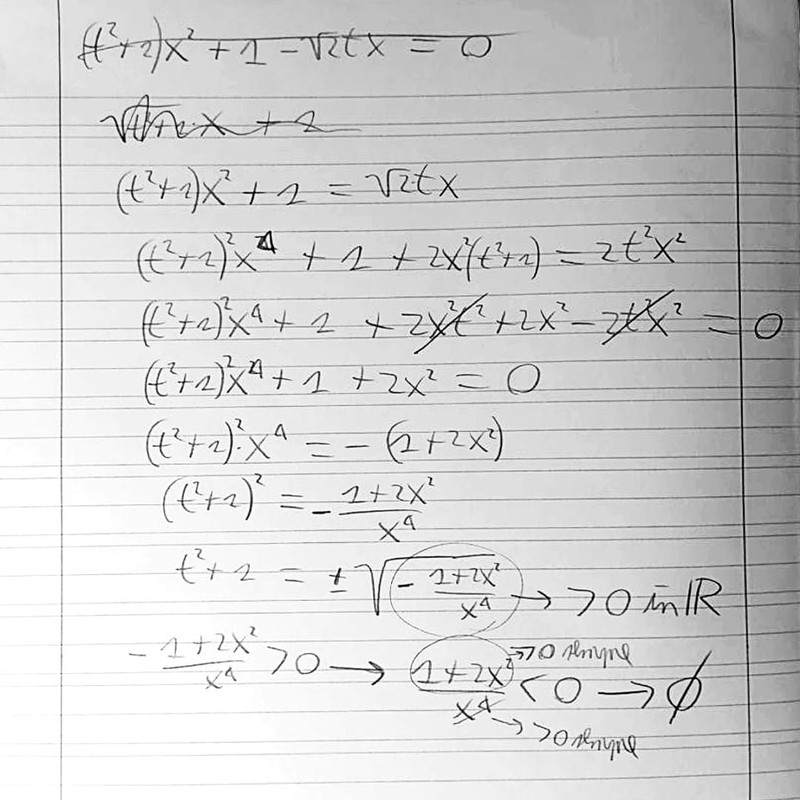 (t²+1)x² + 1 - √2tx = 0
(t²+1)x² + 1 = √2tx
(t²+1)²x⁴ + 1 + 2x²(t²+1) = 2t²x²
(t²+1)²x⁴ + 1 + 2x²t² + 2x² - 2t²x² = 0
(t²+1)²x⁴ + 1 + 2x² = 0
(t²+1)²·x⁴ = - (1+2x²)
(t²+1)² = - (1+2x²)/x⁴
t²+1 = ± √(- (1+2x²)/x⁴) → >0 in ℝ
- (1+2x²)/x⁴ > 0 → (1+2x²)/x⁴ < 0 → ∅
→ >0 sempre
→ >0 sempre